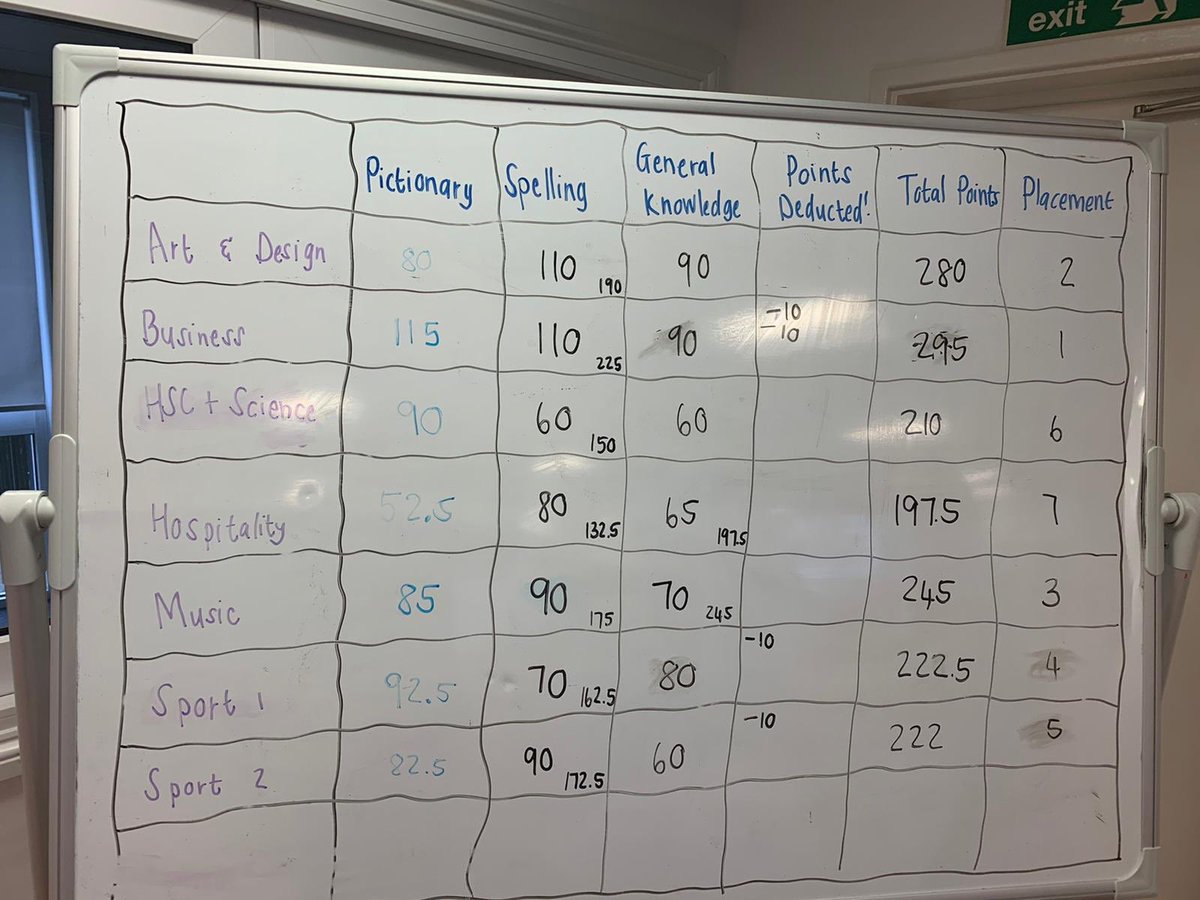 exit
Pictionary Spelling General Knowledge Points Deducted! Total Points Placement
Art & Design 80 110 190 90 280 2
Business 115 110 225 90 -10 -10 295 1
HSC + Science 90 60 150 60 210 6
Hospitality 52.5 80 132.5 65 197.5 197.5 7
Music 85 90 175 70 245 245 3
Sport 1 92.5 70 162.5 80 -10 222.5 4
Sport 2 82.5 90 172.5 60 -10 222 5